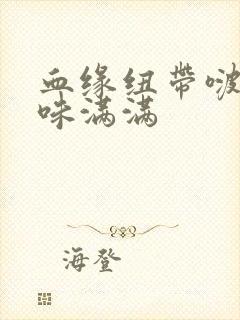 血缘纽带啵
味满满
海登